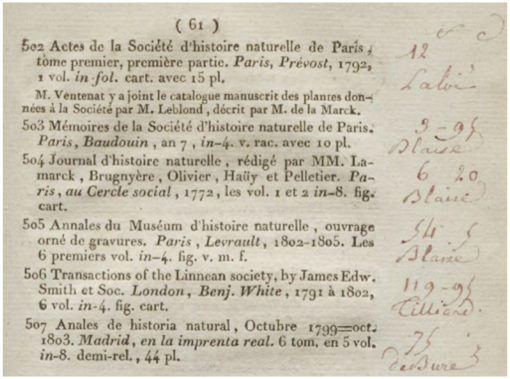 ( 61 )
502 Actes de la Société d'histoire naturelle de Paris,
tome premier, première partie. Paris, Prévost, 1792,
1 vol. in-fol. cart. avec 15 pl.
12
M. Ventenat y a joint le catalogue manuscrit des plantes don-
nées à la Société par M. Leblond, décrit par M. de la Marck.
503 Mémoires de la Société d'histoire naturelle de Paris.
Paris, Baudouin, an 7, in-4. v. rac. avec 10 pl.
3-95
Blaise
504 Journal d'histoire naturelle, rédigé par MM. La-
marck, Brugnyère, Olivier, Haüy et Pelletier. Pa-
ris, au Cercle social, 1772, les vol. 1 et 2 in-8. fig.
cart.
6 20
Blaise
505 Annales du Muséum d'histoire naturelle, ouvrage
orné de gravures. Paris, Levrault, 1802-1805. Les
6 premiers vol. in-4. fig. v. m. f.
54 5
Blaise
506 Transactions of the Linnean society, by James Edw.
Smith et Soc. London, Benj. White, 1791 à 1802,
6 vol. in-4. fig. cart.
119-95
Tilliard
507 Anales de historia natural, Octubre 1799=oct.
1803. Madrid, en la imprenta real. 6 tom. en 5 vol.
in-8. demi-rel., 44 pl.
75
de Bure